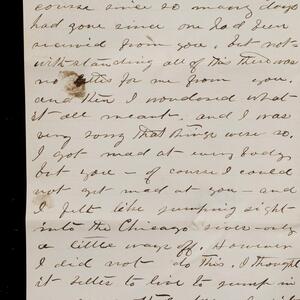 course since so many days
had gone since one had been
received from you, but not-
withstanding all of this there was
no letter for me from you.
and then I wondered what
it all meant. and I was
very sorry that things were so.
I got mad at every body
but you - of course I could
not get mad at you - and
I felt like jumping right
into the Chicago river - only
a little ways off. However
I did not do this. I thought
it better to live to jump in